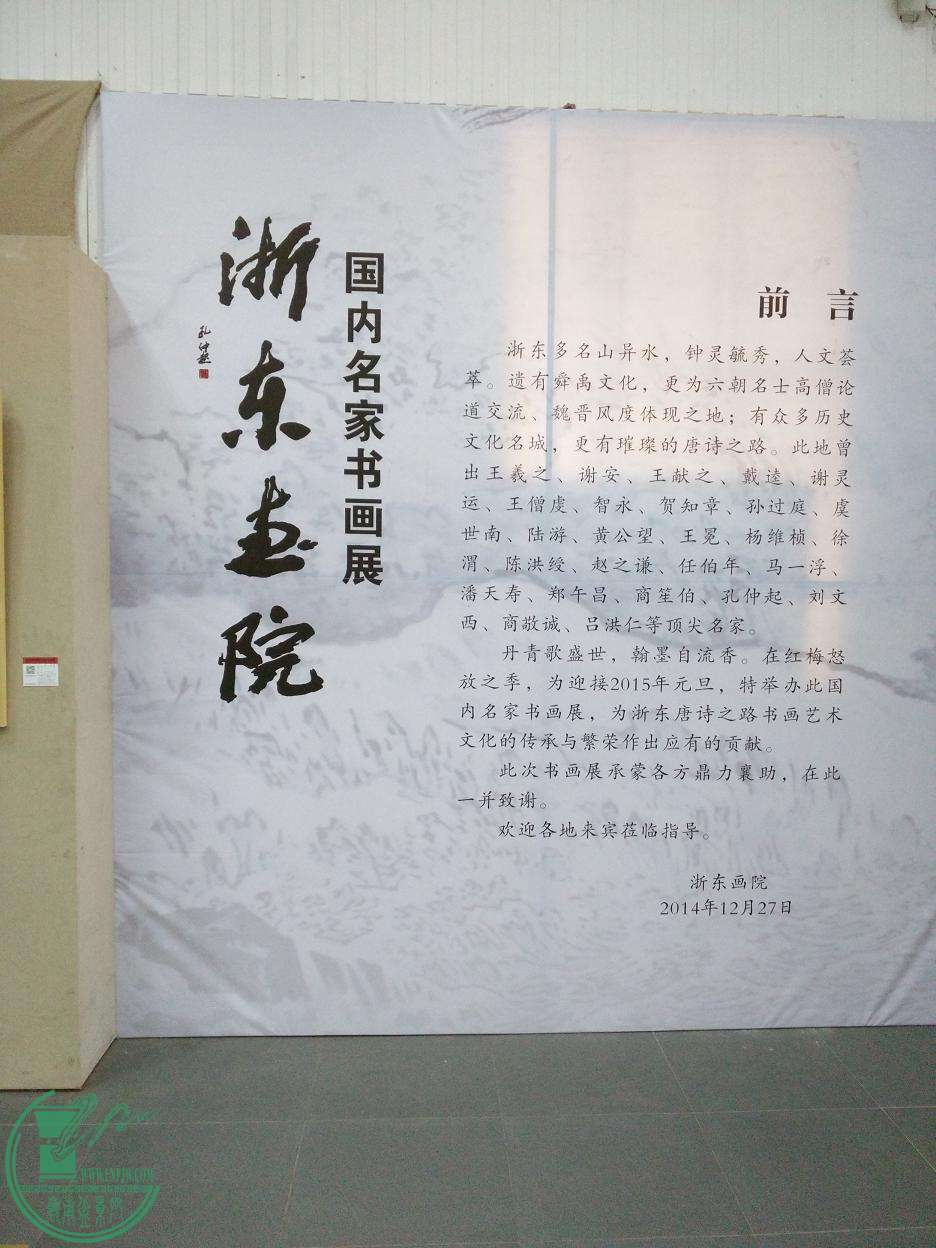 浙东画院
孔仲起
国内名家书画展
前言
浙东多名山异水，钟灵毓秀，人文荟
萃。遗有舜禹文化，更为六朝名士高僧论
道交流、魏晋风度体现之地；有众多历史
文化名城，更有璀璨的唐诗之路。此地曾
出王羲之、谢安、王献之、戴逵、谢灵
运、王僧虔、智永、贺知章、孙过庭、虞
世南、陆游、黄公望、王冕、杨维桢、徐
渭、陈洪绶、赵之谦、任伯年、马一浮、
潘天寿、郑午昌、商笙伯、孔仲起、刘文
西、商敬诚、吕洪仁等顶尖名家。
丹青歌盛世，翰墨自流香。在红梅怒
放之季，为迎接2015年元旦，特举办此国
内名家书画展，为浙东唐诗之路书画艺术
文化的传承与繁荣作出应有的贡献。
此次书画展承蒙各方鼎力襄助，在此
一并致谢。
欢迎各地来宾莅临指导。
浙东画院
2014年12月27日